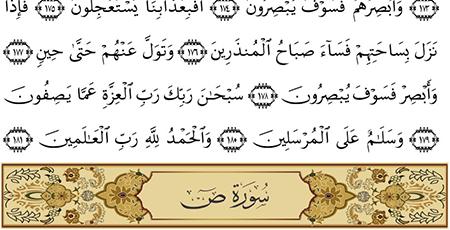 ﴿١٧٣﴾ وَأَبْصِرْهُمْ فَسَوْفَ يُبْصِرُونَ ﴿١٧٤﴾ أَفَبِعَذَابِنَا يَسْتَعْجِلُونَ ﴿١٧٥﴾ فَإِذَا
نَزَلَ بِسَاحَتِهِمْ فَسَآءَ صَبَاحُ ٱلْمُنذَرِينَ ﴿١٧٦﴾ وَتَوَلَّ عَنْهُمْ حَتَّىٰ حِينٍ ﴿١٧٧﴾
وَأَبْصِرْ فَسَوْفَ يُبْصِرُونَ ﴿١٧٨﴾ سُبْحَـٰنَ رَبِّكَ رَبِّ ٱلْعِزَّةِ عَمَّا يَصِفُونَ
﴿١٧٩﴾ وَسَلَـٰمٌ عَلَى ٱلْمُرْسَلِينَ ﴿١٨٠﴾ وَٱلْحَمْدُ لِلَّهِ رَبِّ ٱلْعَـٰلَمِينَ ﴿١٨١﴾
سُورَةُ صٓ